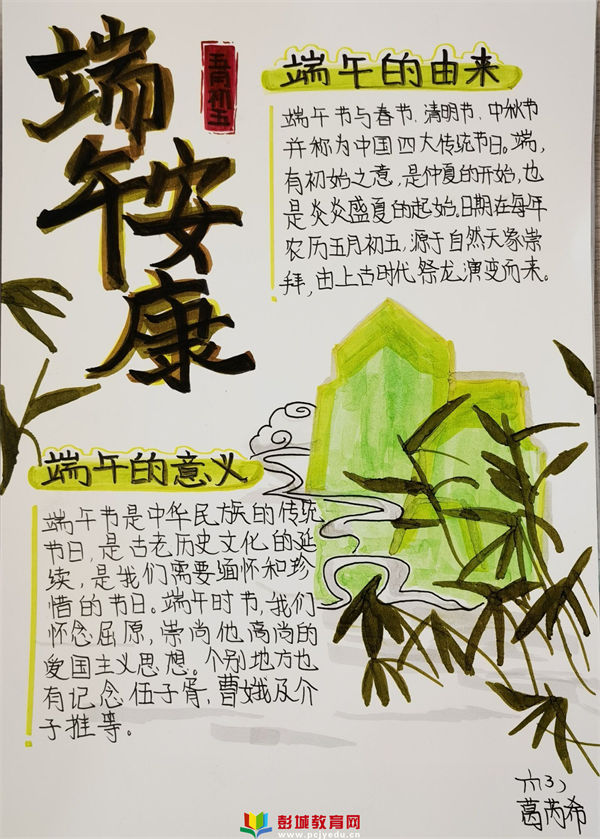 端午安康
五月初五
端午的由来
端午节与春节、清明节、中秋节
并称为中国四大传统节日。端,
有初始之意,是仲夏的开始,也
是炎炎盛夏的起始。日期在每年
农历五月初五,源于自然天象崇
拜,由上古时代祭龙演变而来。
端午的意义
端午节是中华民族的传统
节日,是古老历史文化的延
续,是我们需要缅怀和珍
惜的节日。端午时节,我们
怀念屈原,崇尚他高尚的
爱国主义思想。个别地方也
有记念伍子胥,曹娥及介
子推等。
六(3)
葛芮希
彭城教育网
www.pcjyedu.cn